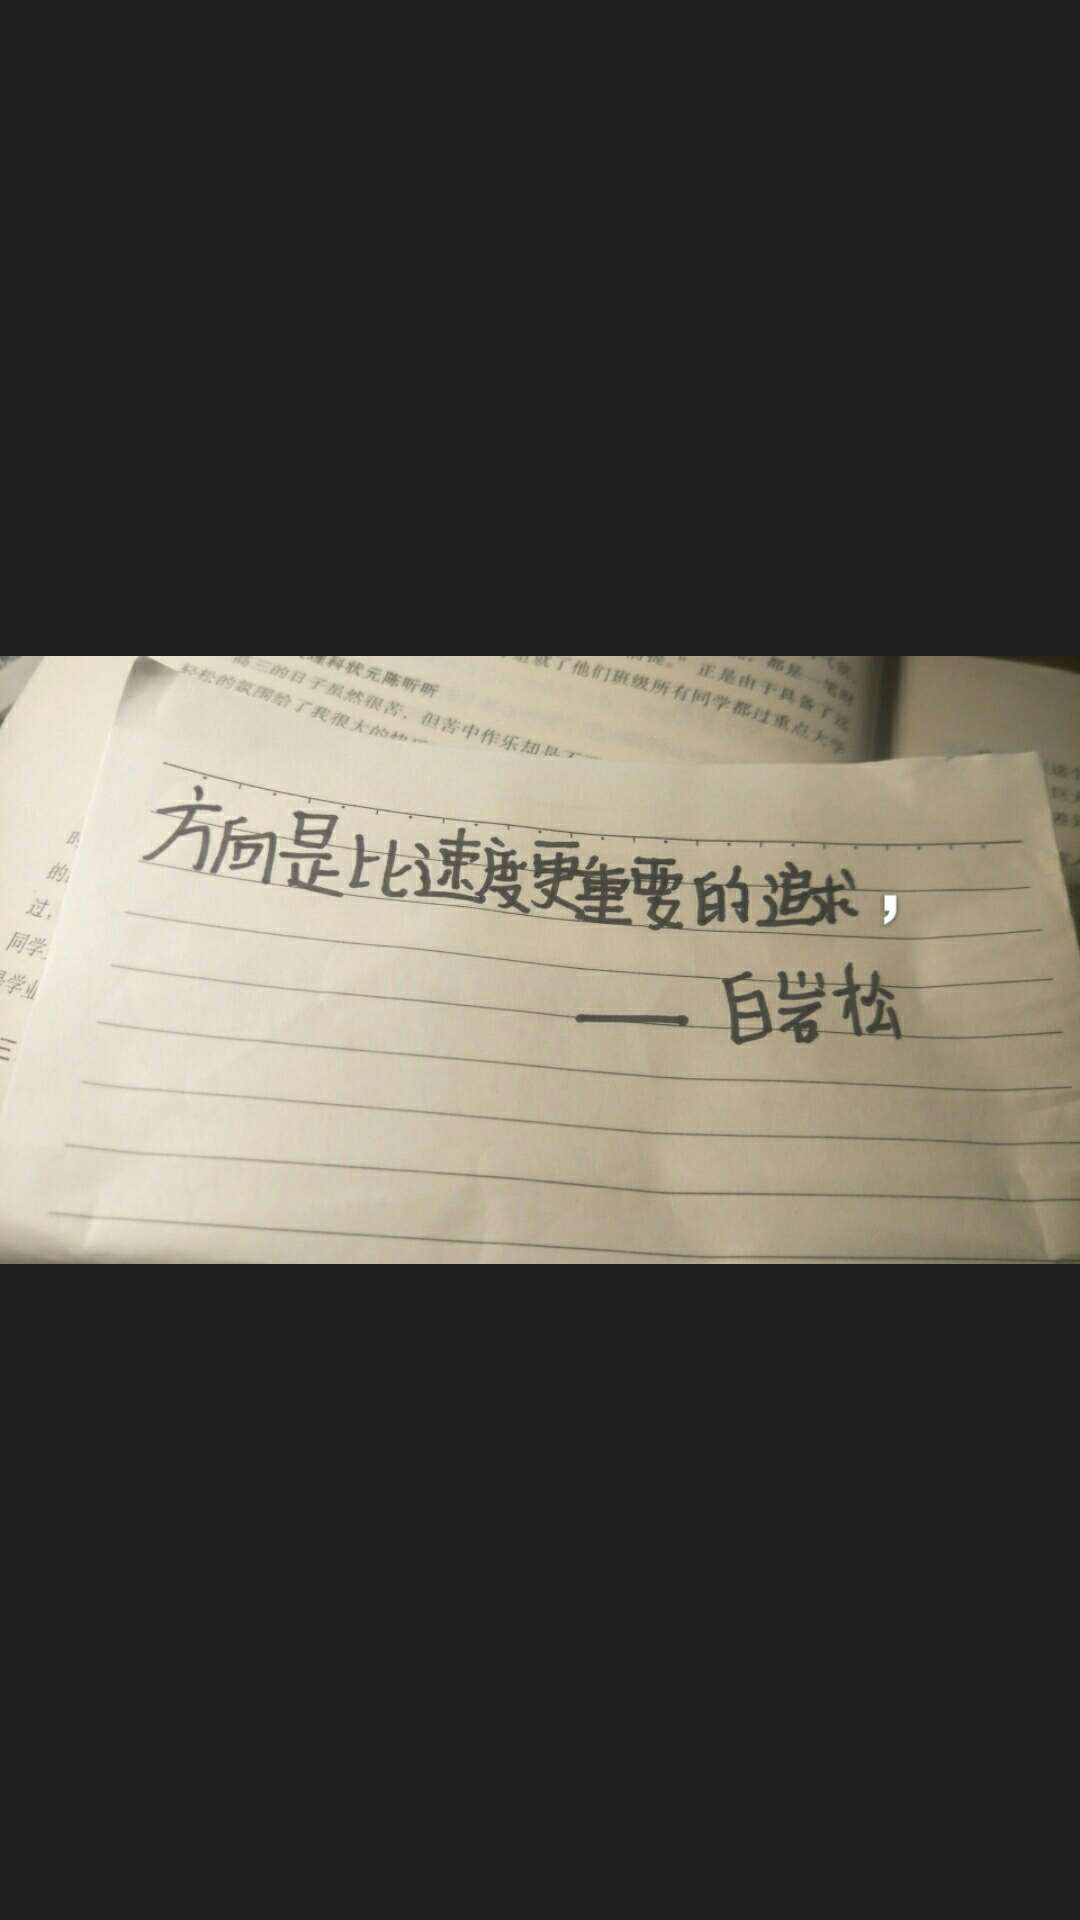 理科状元陈昕昕
高三的日子虽然很苦，但苦中作乐却是
轻松的氛围给了我很大的快
都是一笔财
正是由于具备了这
了他们班级所有同学都过重点大学
的
过，
同学
学业
三
方向是比速度更重要的追求，
—— 白岩松